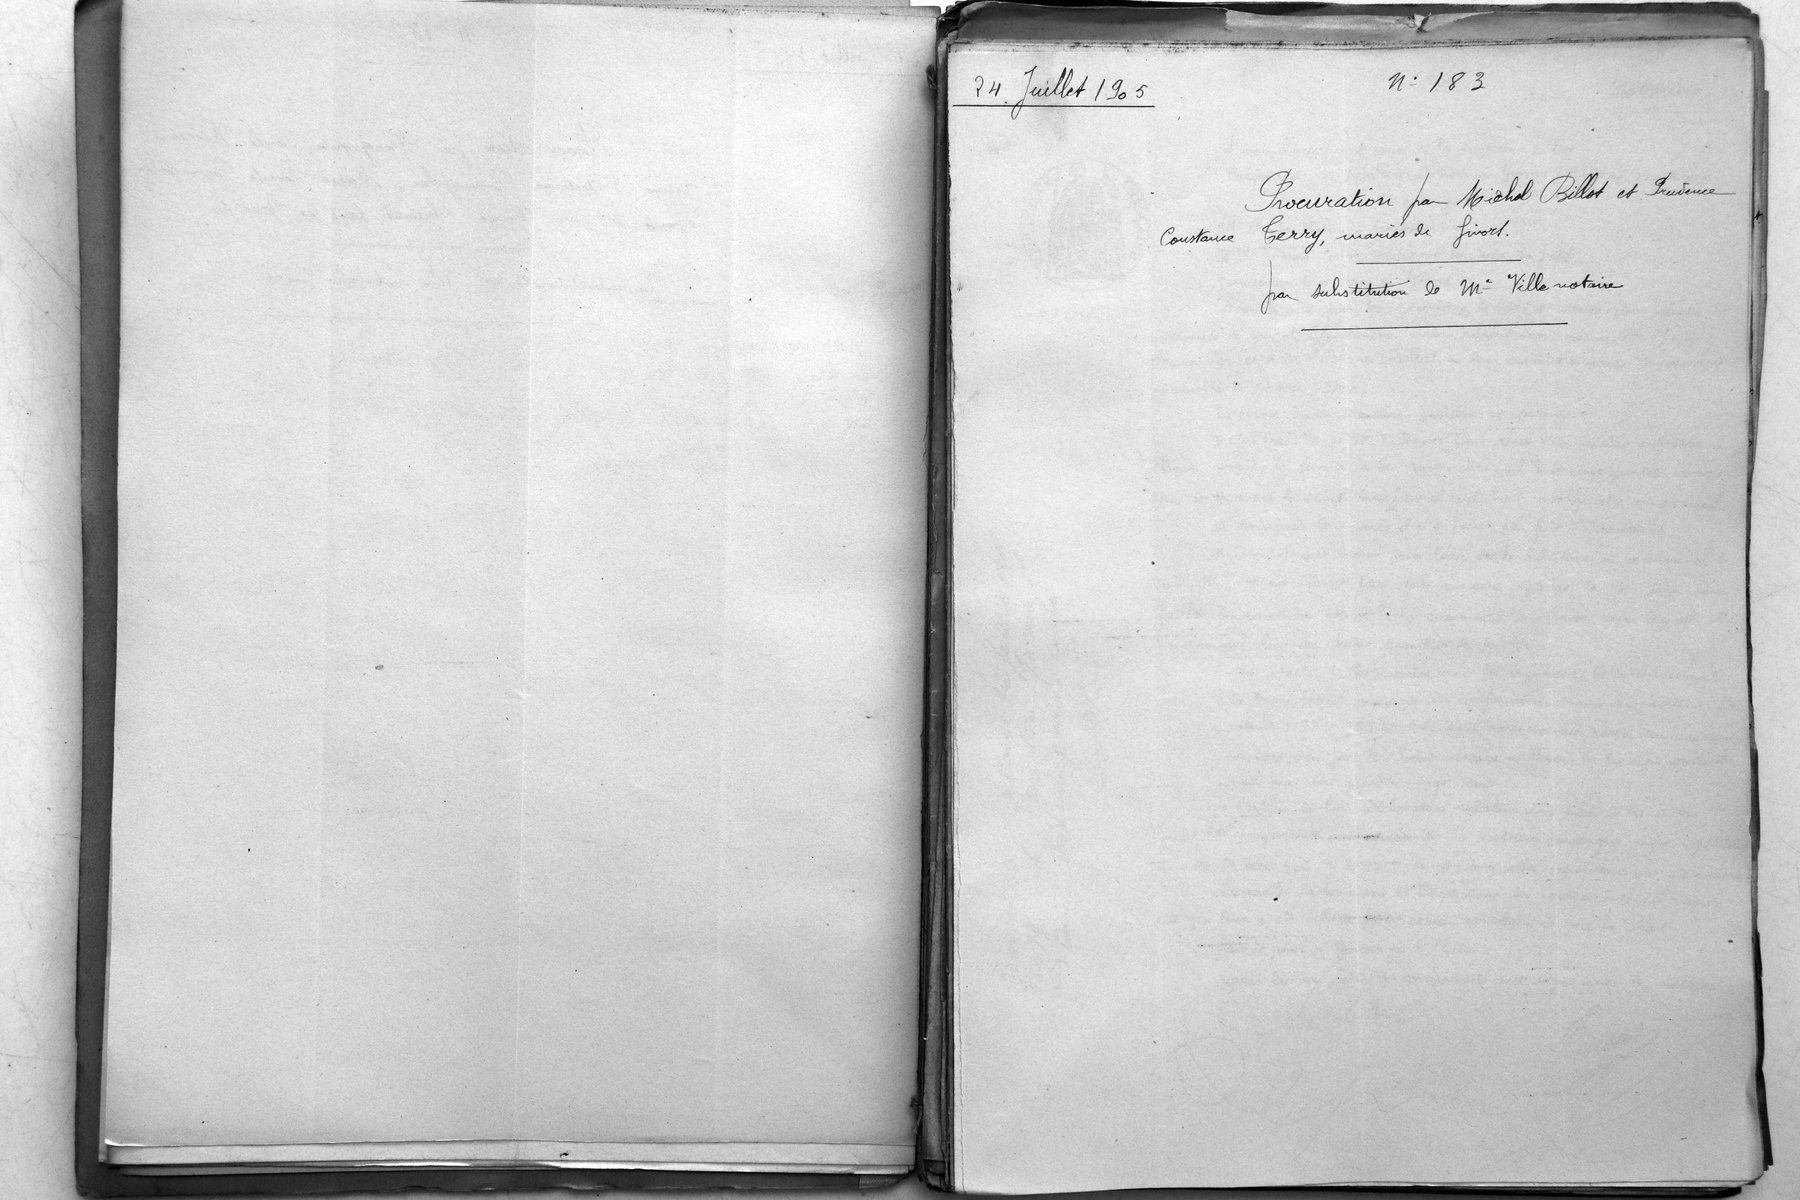 24 Juillet 1905
N° 183
Procuration par Michel Billot et Prudence
Constance Terry, mariés de Givors.
par substitution de Me Ville notaire